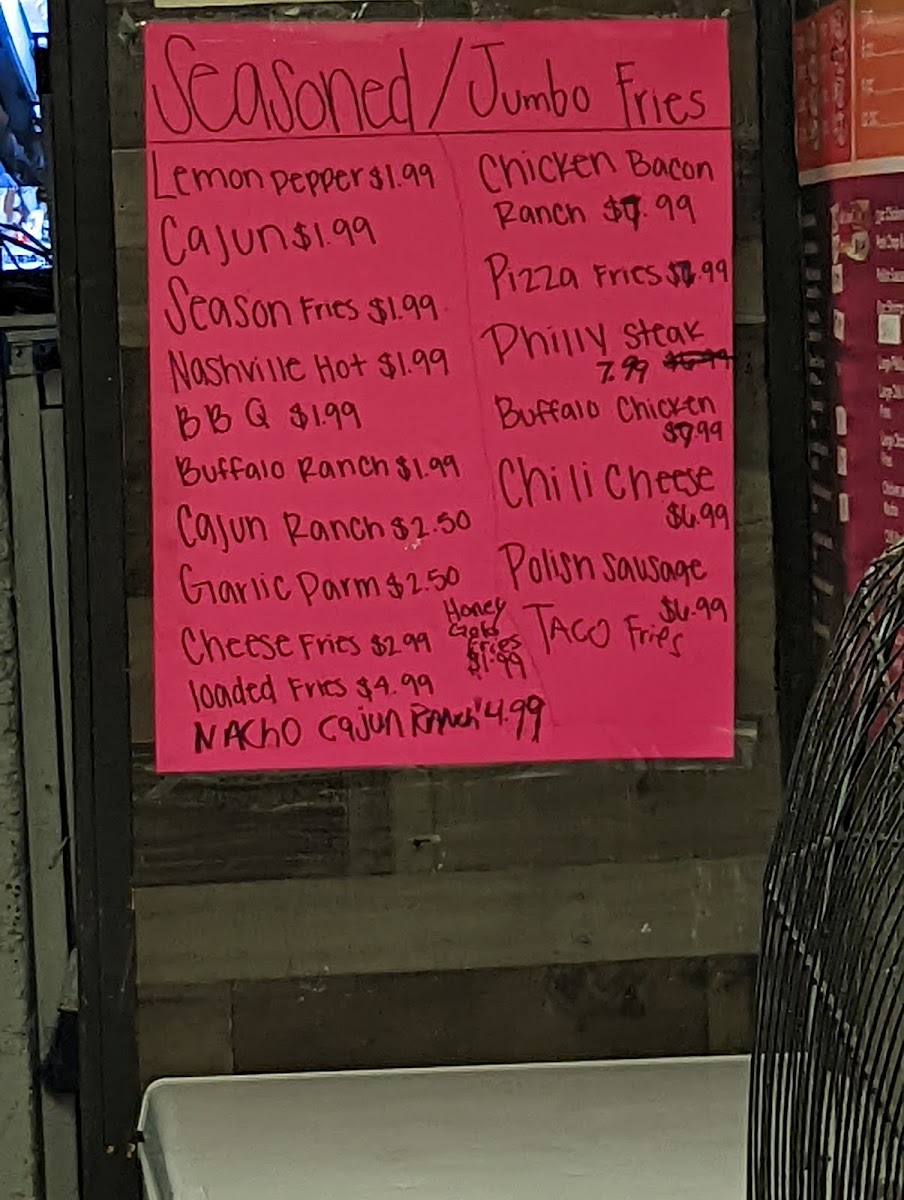 Seasoned / Jumbo Fries
Lemon Pepper $1.99
Cajun $1.99
Season Fries $1.99
Nashville Hot $1.99
BBQ $1.99
Buffalo Ranch $1.99
Cajun Ranch $2.50
Garlic Parm $2.50
Cheese Fries $2.99
loaded Fries $4.99
NACHO Cajun Ranch 4.99
Honey
Gold
Fries
$1.99
Chicken Bacon
Ranch $7.99
Pizza Fries
Philly Steak
7.99
Buffalo Chicken
$7.99
Chili Cheese
$6.99
Polish Sausage
$6.99
TACO Fries